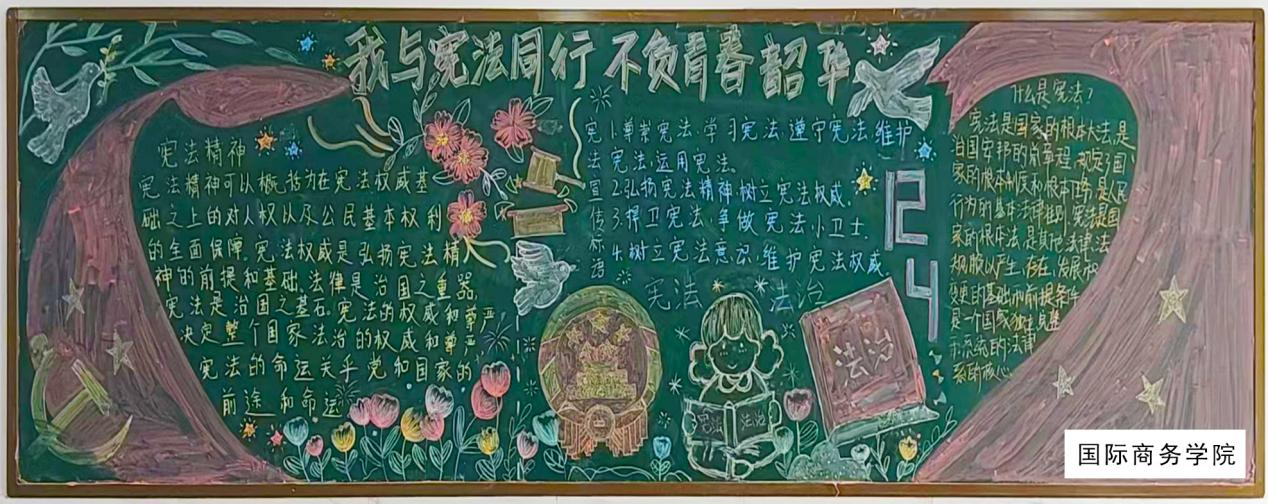 我与宪法同行 不负青春韶华
宪法精神
宪法精神可以概括为在宪法权威基
础之上的对人权以及公民基本权利
的全面保障。宪法权威是弘扬宪法精
神的前提和基础。法律是治国之重器
宪法是治国之基石。宪法的权威和尊严
决定整个国家法治的权威和尊严
宪法的命运关乎党和国家的
前途和命运
宪法宣传标语
1.尊崇宪法、学习宪法、遵守宪法、维护
宪法、运用宪法。
2.弘扬宪法精神树立宪法权威。
3.捍卫宪法,争做宪法小卫士.
4.树立宪法意识,维护宪法权威
宪法 法治
12
4
法治
宪法 法治
什么是宪法?
宪法是国家的根本大法,是
治国安邦的总章程,规定了国
家的根本制度和根本任务,是人民
行为的基本法律
宪法是国
家的根本法,是其他法律、法
规赖以产生、存在、发展和
变更的基础和前提条件
是一个国家独立、完整
系统的法律
系的核心
国际商务学院